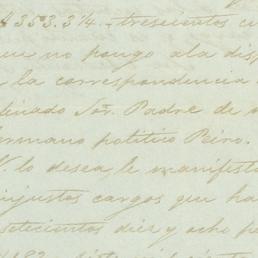 $ 353.3¼ - trescientos ci
que no pongo a la disp
la correspondencia
finado Sor. Padre de
hermano politico Peiro.
V. lo desea le manifesta
injustos cargos que ha
setecientos diez y ocho pe